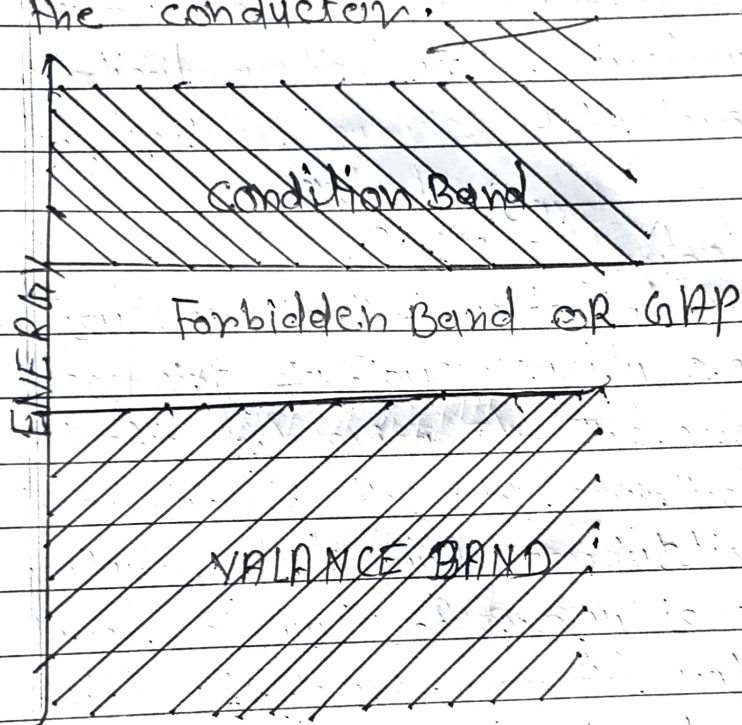 the conductor.
Condition Band
ENERGY
Forbidden Band OR GAP
VALANCE BAND